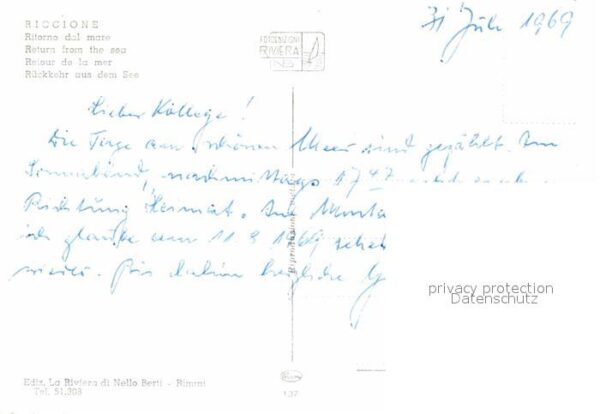 RICCIONE
Ritorno dal mare
Return from the sea
Retour de la mer
Rückkehr aus dem See
FOTOEDIZIONI
RIVIERA
31 Juli 1969
Lieber Kollege!
Die Tage am schönen Meer sind gezählt. Am
Sonnabend, nachmittags 1747
Richtung Heimat. Am
ich glaube am 11 1969
wieder. Bis dahin herzliche
privacy protection
Datenschutz
Ediz. La Riviera di Nello Berti - Rimini
Tel. 51.908
137